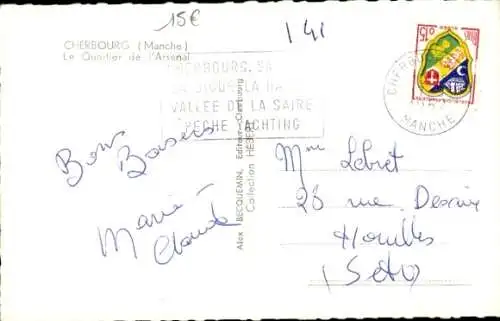 15€
141
CHERBOURG (Manche)
Le Quartier de l'Arsenal
CHERBOURG. SA
LA HA
VALLEE DE LA SAIRE
PECHE YACHTING
CHERBO
MANCHE
Bons
Baisers
Marie-
Claude
Alex BECQUEMIN, Editeur, Cherbourg
Collection HEBER
Mme Lebret
26 rue Desaix
Houilles
(S et O)